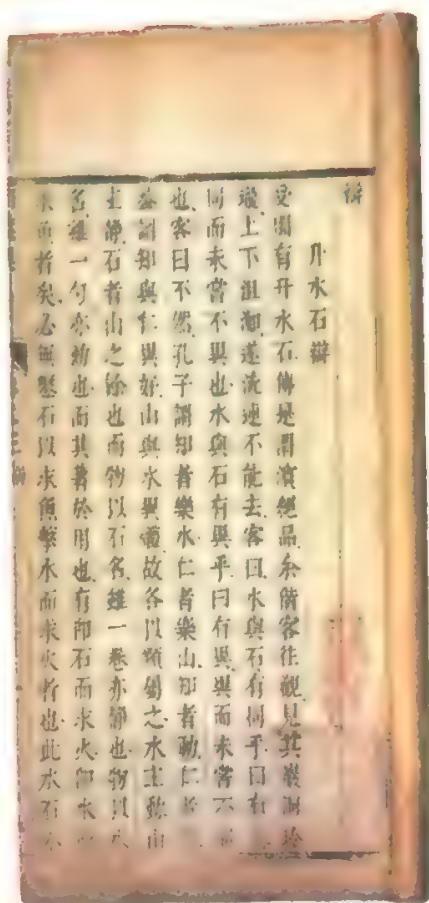 辯
水石辯
有水石傳是絕品余偕客往觀見其巖洞玲
瓏上下洄遂流連不能去客曰水與石有同乎曰有
同而未嘗不異也水與石有異乎曰有異異而未嘗不
也客曰不然孔子謂知者樂水仁者樂山知者動仁者
謂知與仁異好山與水異故各以類之水主動山
主靜石者山之餘也而物以石名雖一卷亦靜也物以水
名雖一勺亦動也而其著於用也有即石而求火即水
求魚者矣必無鑿石以求魚擊水而求火者也此水石